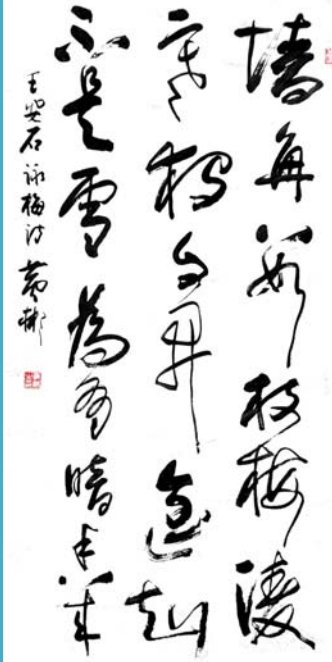 墙角数枝梅凌
寒独自开遥知
不是雪為有暗香来
王安石詠梅诗 黄